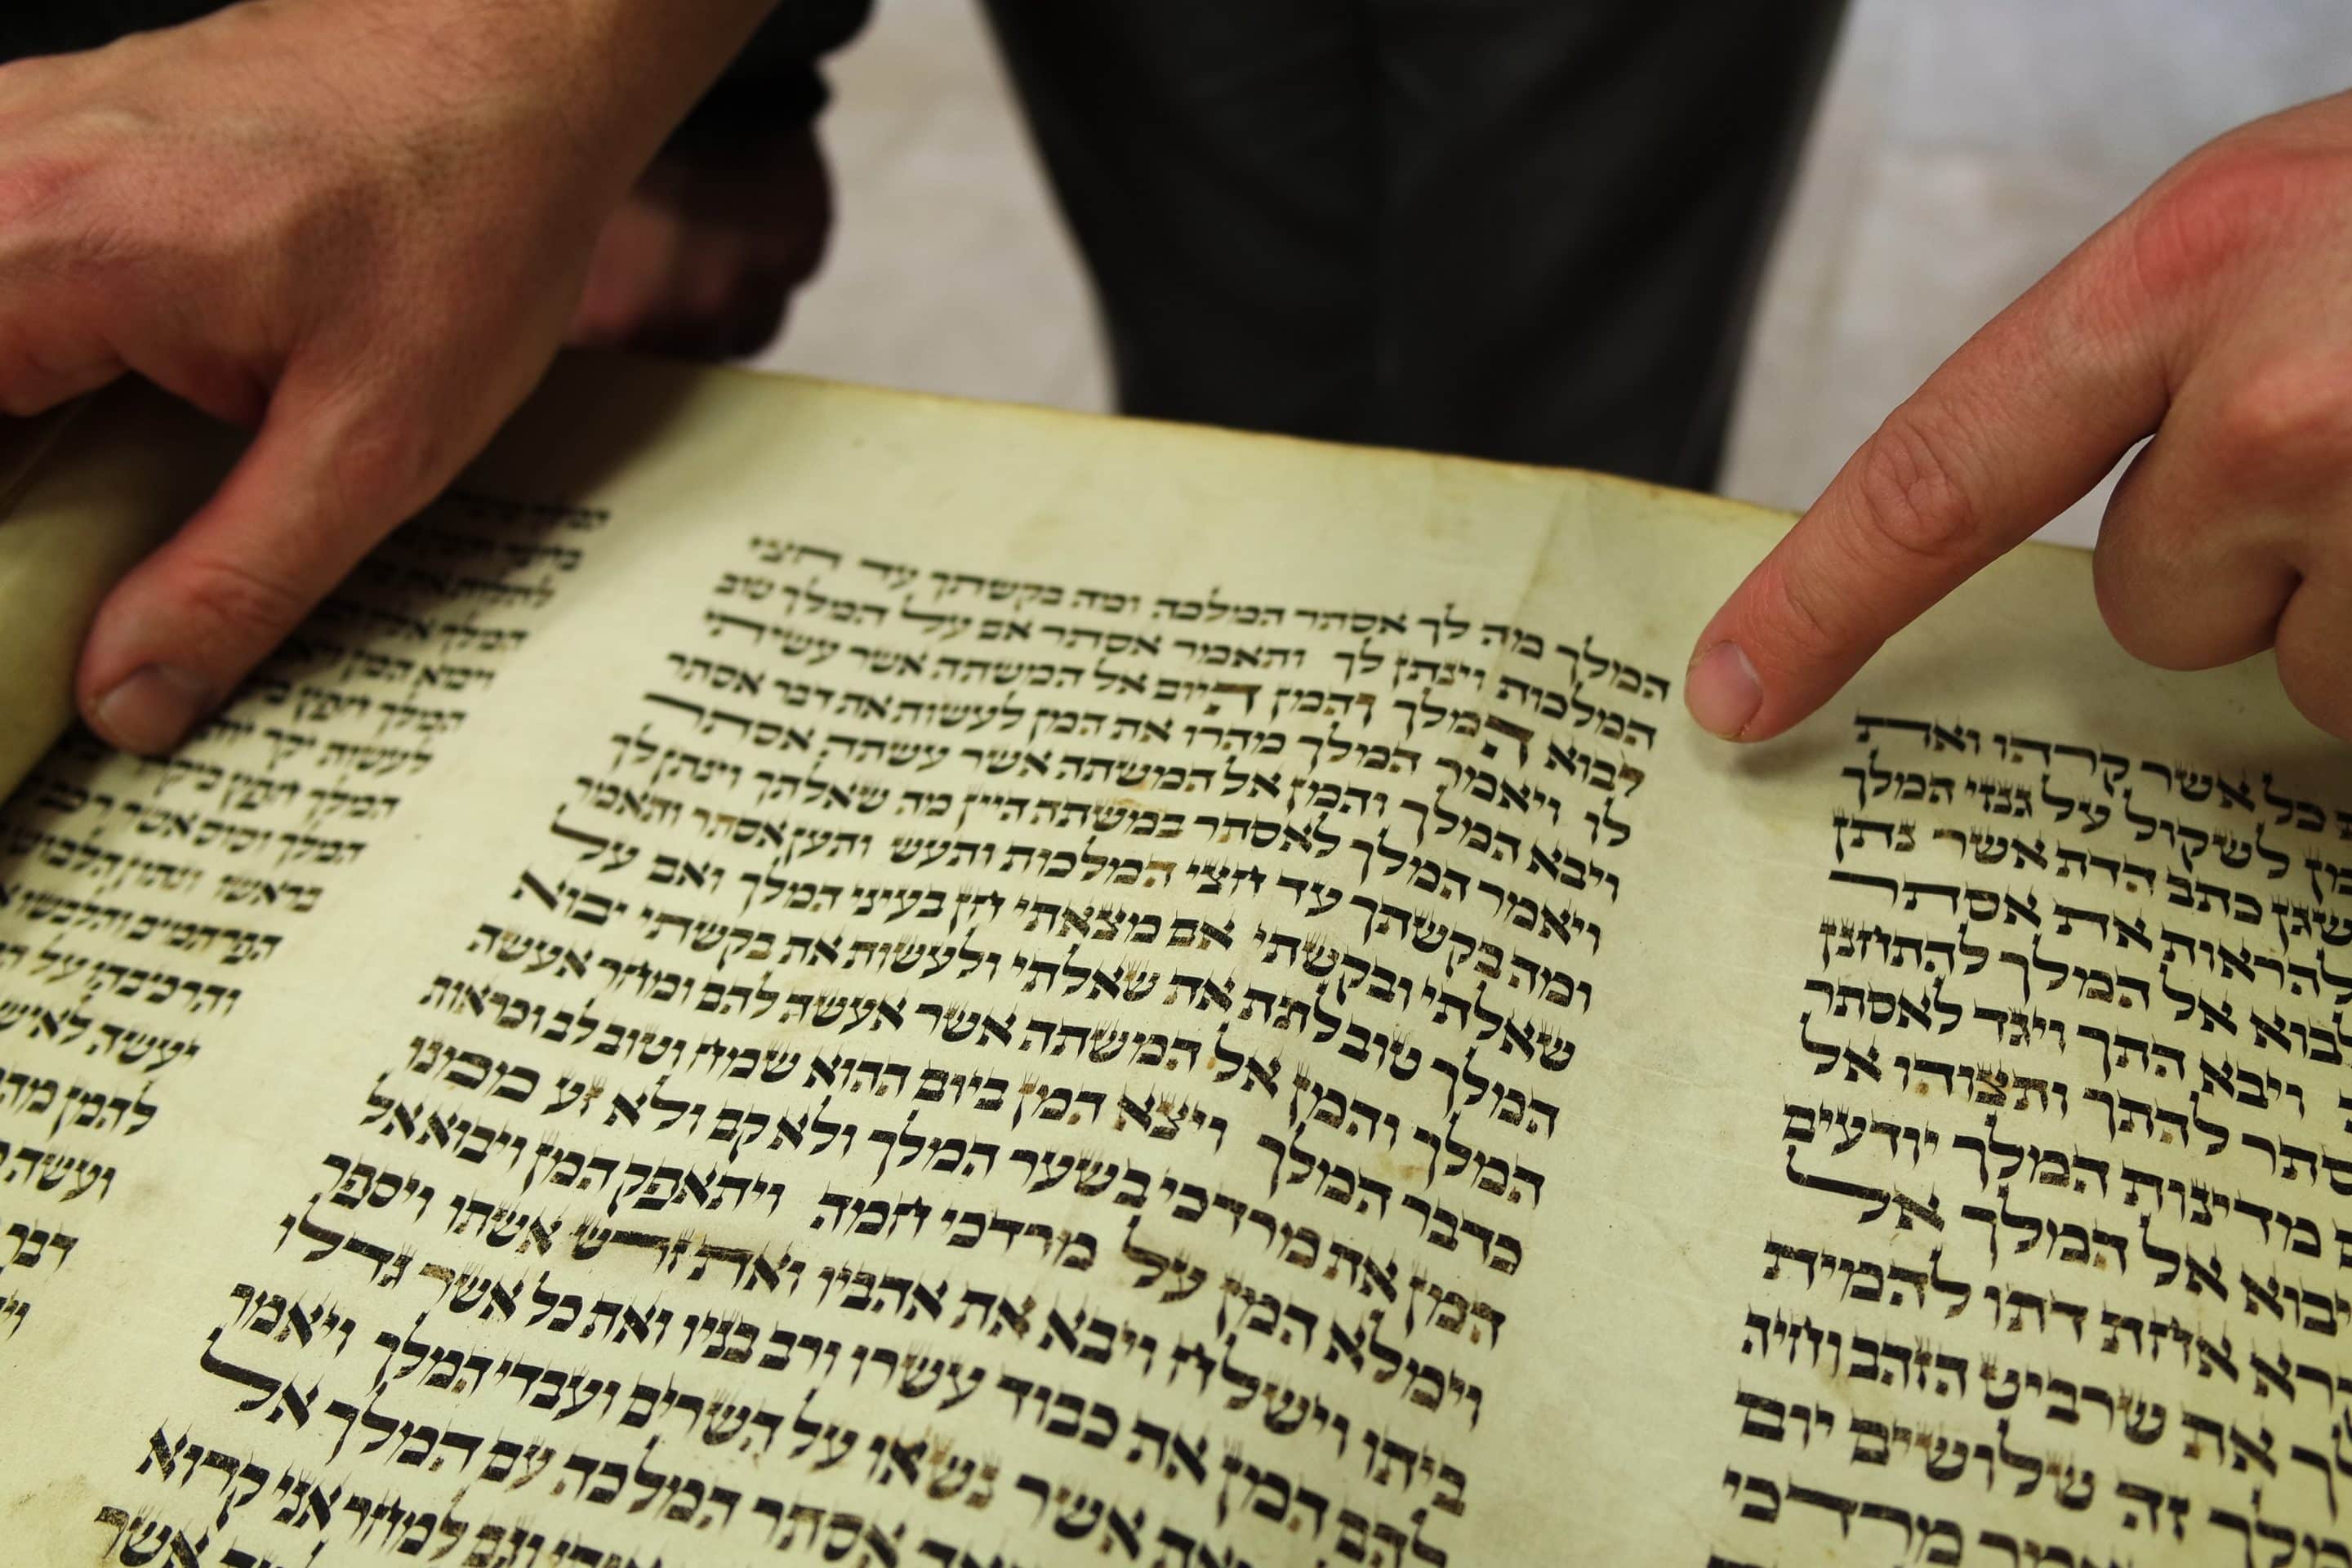 כל אשר קרהו ואת
לשקול על גנזי המלך
כתב הדת אשר נתן
להראות את אסתר
לבוא אל המלך להתחנן
ויבא התך ויגד לאסתר
להתך ותצוהו אל
מדינות המלך יודעים
יבוא אל המלך אל
אחת דתו להמית
את שרביט הזהב וחיה
זה שלושים יום
מרדכי
המלך מה לך אסתר המלכה ומה בקשתך עד חצי
המלכות וינתן לך ותאמר אסתר אם על המלך טוב
יבוא המלך והמן היום אל המשתה אשר עשיתי
לו ויאמר המלך מהרו את המן לעשות את דבר אסתר
ויבא המלך והמן אל המשתה אשר עשתה אסתר
ויאמר המלך לאסתר במשתה היין מה שאלתך וינתן לך
ומה בקשתך עד חצי המלכות ותעש ותען אסתר ותאמר
שאלתי ובקשתי אם מצאתי חן בעיני המלך ואם על
המלך טוב לתת את שאלתי ולעשות את בקשתי יבוא
המלך והמן אל המשתה אשר אעשה להם ומחר אעשה
כדבר המלך ויצא המן ביום ההוא שמח וטוב לב וכראות
המן את מרדכי בשער המלך ולא קם ולא זע ממנו
וימלא המן על מרדכי חמה ויתאפק המן ויבוא אל
ביתו וישלח ויבא את אהביו ואת זרש אשתו ויספר
להם המן את כבוד עשרו ורב בניו ואת כל אשר גדלו
אשר נשאו על השרים ועבדי המלך ויאמר
אסתר המלכה עם המלך אל
וגם למחר אני קרוא
אשר
ויבא המן
המלך חפץ
לעשות יקר
המלך חפץ
המלך וסוס אשר רכב
בראשו ונתון הלבוש
הפרתמים והלבשו
והרכיבהו על
יעשה לאיש
להמן מהר
ועשה
דבר